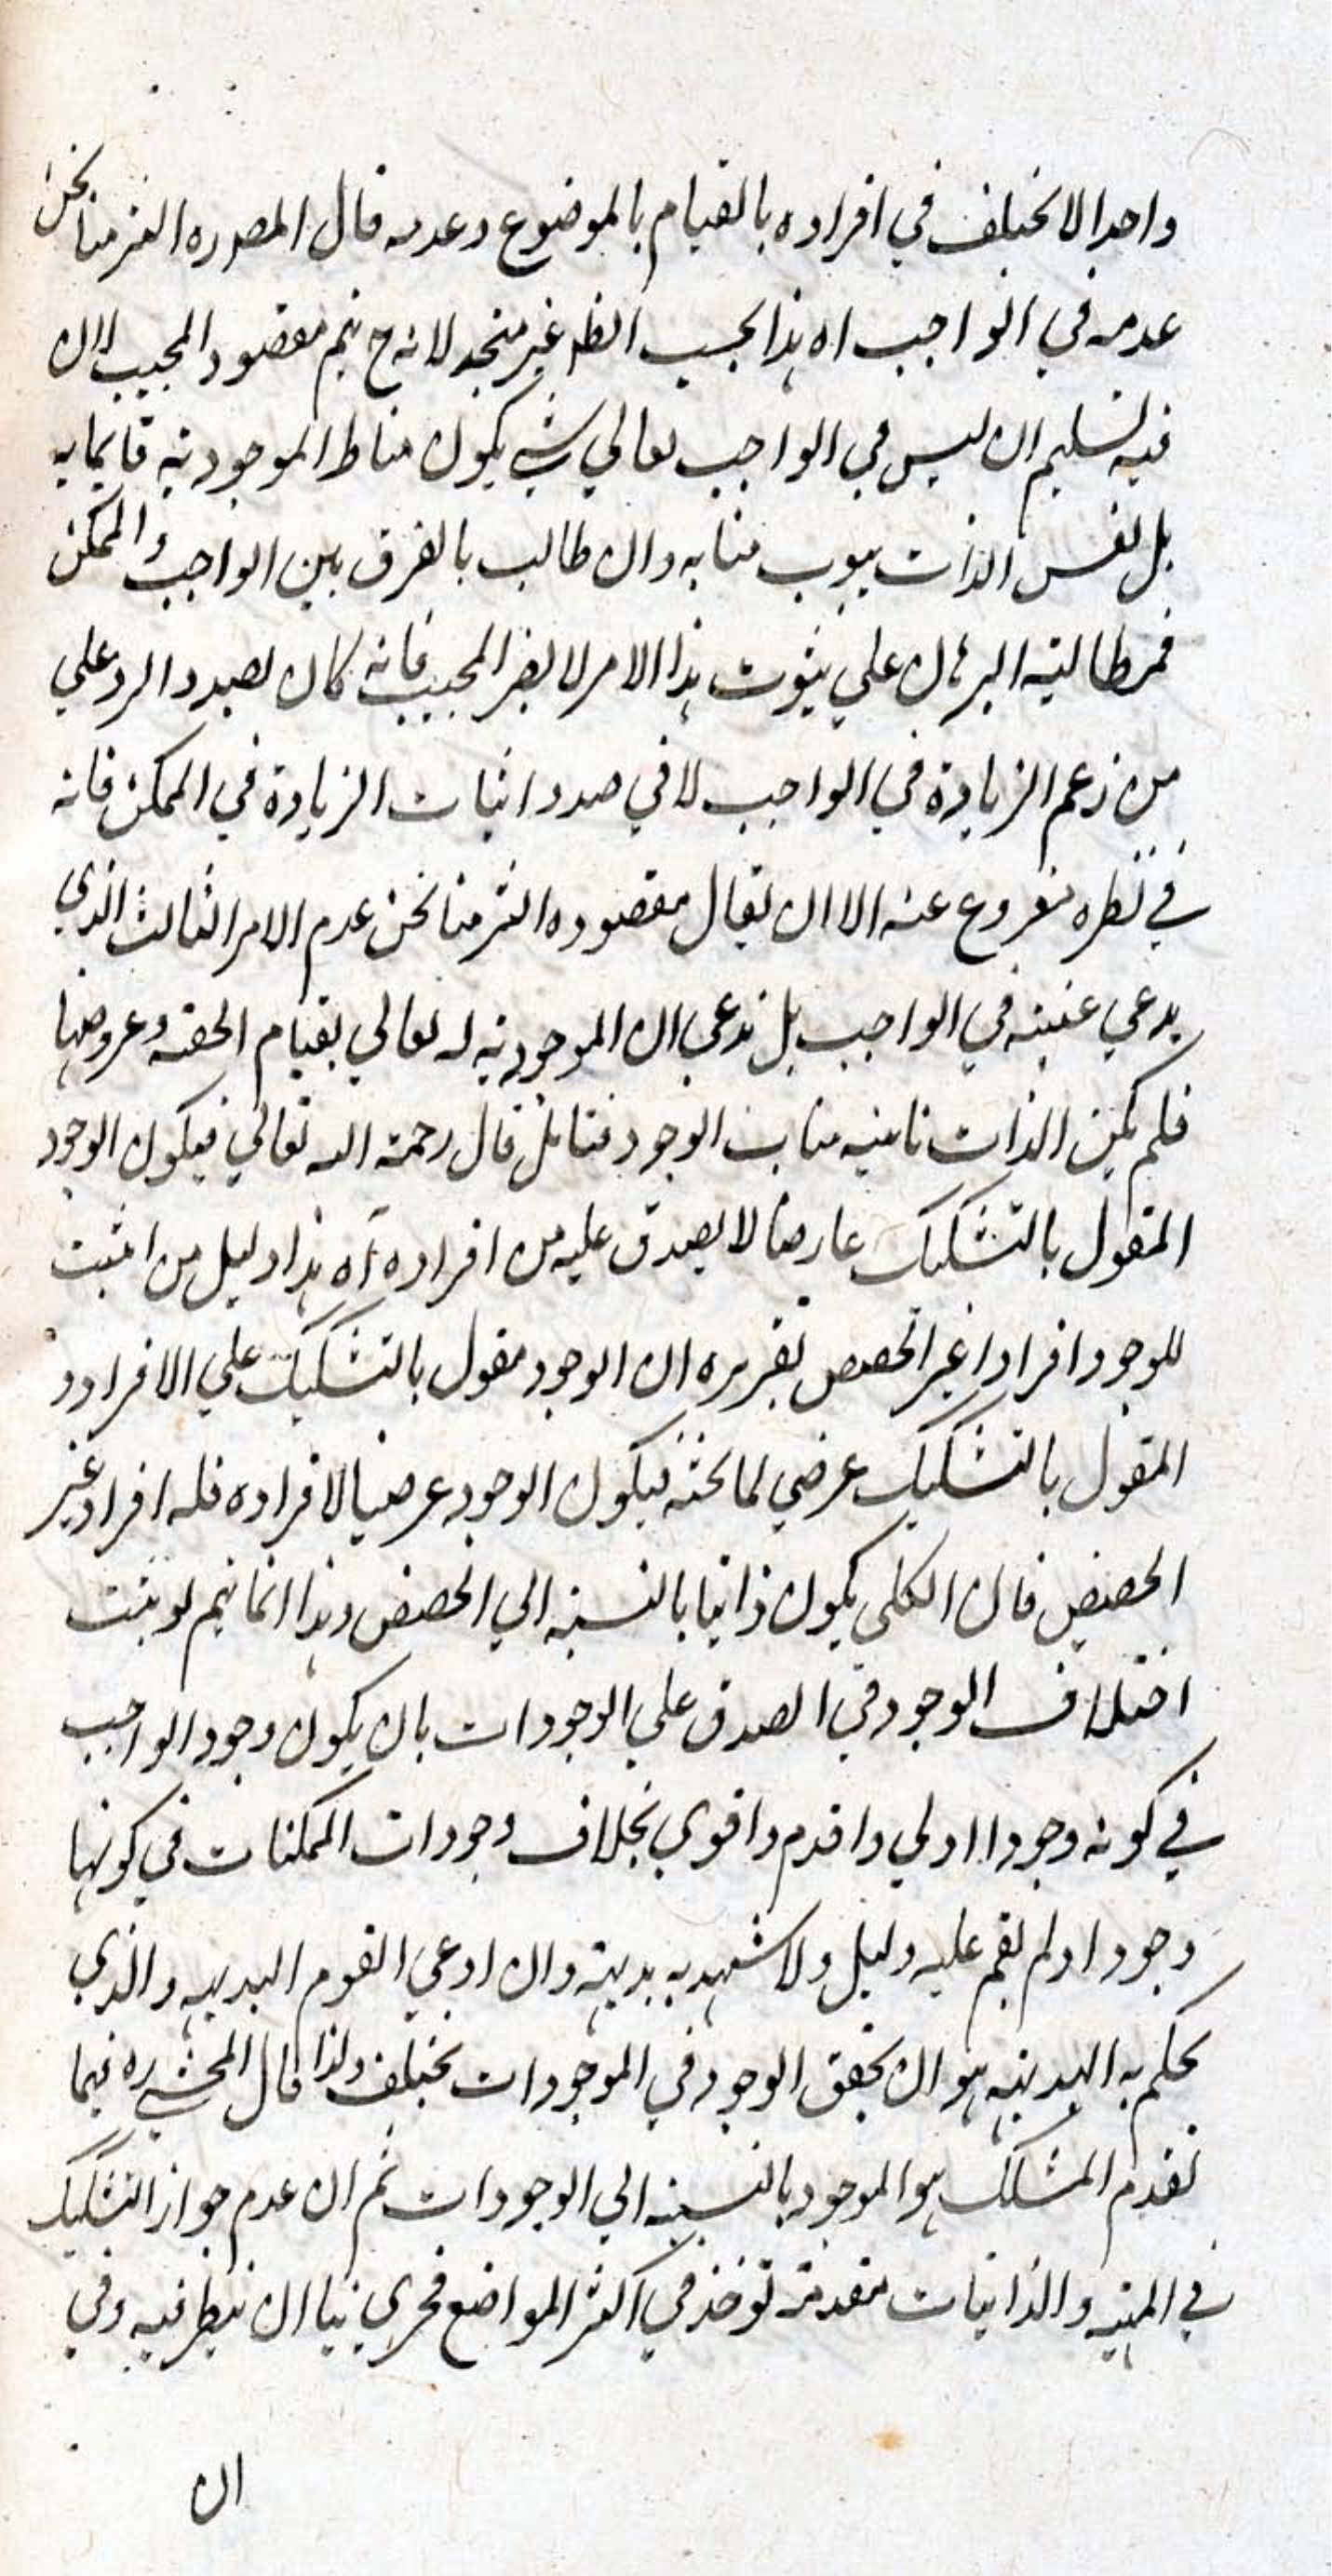 واحدا لا يختلف في افراده بالقيام بالموضوع وعدمه قال المص ره التزمنا نحن
عدمه في الواجب اه هذا بحسب الظ غير متجه لانه ح يتم مقصود المجيب لان
فيه تسليم ان ليس في الواجب تعالي شي يكون مناط الموجودية قايما به
بل نفس الذات ينوب منابه وان طالب بالفرق بين الواجب والممكن
فمطالبة البرهان علي ثبوت هذا الامر لا يضر المجيب فانه كان بصدد الرد علي
من زعم الزيادة في الواجب لا في صدد اثبات الزيادة في الممكن فانه
في نظره مفروغ عنه الا ان يقال مقصوده التزمنا نحن عدم الامر الثالث الذي
يدعي عينيته في الواجب بل ندعي ان الموجودية له تعالي بقيام الحصة وعروضها
فلم يكن الذات نائبة مناب الوجود فتامل قال رحمة الله تعالي فيكون الوجود
المقول بالتشكيك عارضا لا يصدق عليه من افراده آه هذا دليل من اثبت
للوجود افرادا غير الحصص تقريره ان الوجود مقول بالتشكيك علي الافراد و
المقول بالتشكيك عرضي لما تحته فيكون الوجود عرضيا لافراده فله افراد غير
الحصص فان الكلي يكون ذاتيا بالنسبة الي الحصص وهذا انما يتم لو ثبت
اختلاف الوجود في الصدق علي الوجودات بان يكون وجود الواجب
في كونه وجودا اولي واقدم واقوي بخلاف وجودات الممكنات في كونها
وجودا ولم يقم عليه دليل ولا شهد به بديهة وان ادعي القوم البديهه والذي
يحكم به البديهة هو ان تحقق الوجود في الموجودات مختلف ولذا قال المحشي ره فيما
تقدم المشكك هو الموجود بالنسبة الي الوجودات ثم ان عدم جواز التشكيك
في المهية والذاتيات مقدمة تؤخذ في اكثر المواضع فحري بنا ان ننظر فيه وفي
ان